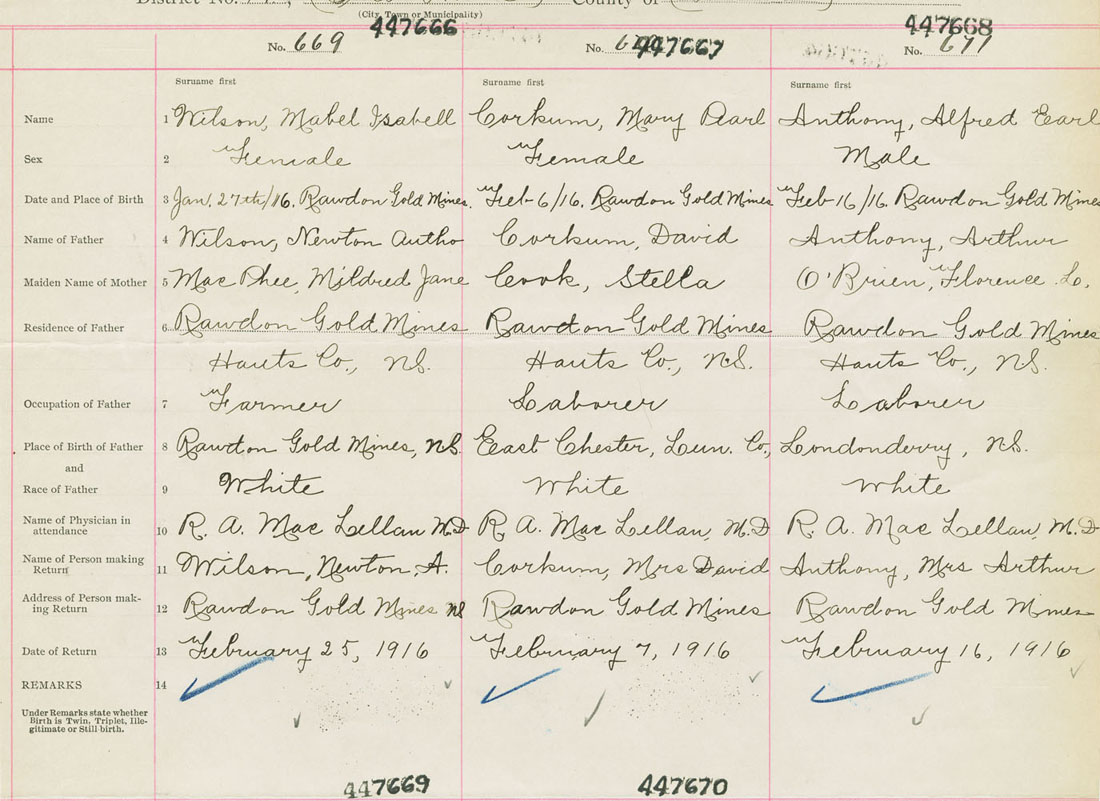 District No.
County of
(City, Town or Municipality)
447666 447667 447668
No. 669 No. No. 671
Surname first Surname first Surname first
Name 1 Wilson, Mabel Isabell Corkum, Mary Pearl Anthony, Alfred Earl
Sex 2 Female Female Male
Date and Place of Birth 3 Jan. 27th/16. Rawdon Gold Mines. Feb 6/16. Rawdon Gold Mines Feb 16/16. Rawdon Gold Mines
Name of Father 4 Wilson, Newton Autho Corkum, David Anthony, Arthur
Maiden Name of Mother 5 Mac Phee, Mildred Jane Cook, Stella O'Brien, Florence L.
Residence of Father 6 Rawdon Gold Mines Rawdon Gold Mines Rawdon Gold Mines
Hants Co., N.S. Hants Co., N.S. Hants Co., N.S.
Occupation of Father 7 Farmer Laborer Laborer
Place of Birth of Father 8 Rawdon Gold Mines, N.S. East Chester, Lun. Co., Londonderry, N.S.
and
Race of Father 9 White White White
Name of Physician in
attendance 10 R. A. Mac Lellan M.D R. A. Mac Lellan, M.D R. A. Mac Lellan, M.D
Name of Person making
Return 11 Wilson, Newton, A. Corkum, Mrs David Anthony, Mrs Arthur
Address of Person mak-
ing Return 12 Rawdon Gold Mines NS Rawdon Gold Mines Rawdon Gold Mines
Date of Return 13 February 25, 1916 February 7, 1916 February 16, 1916
REMARKS 14
Under Remarks state whether
Birth is Twin, Triplet, Ille-
gitimate or Still-birth.
447669 447670